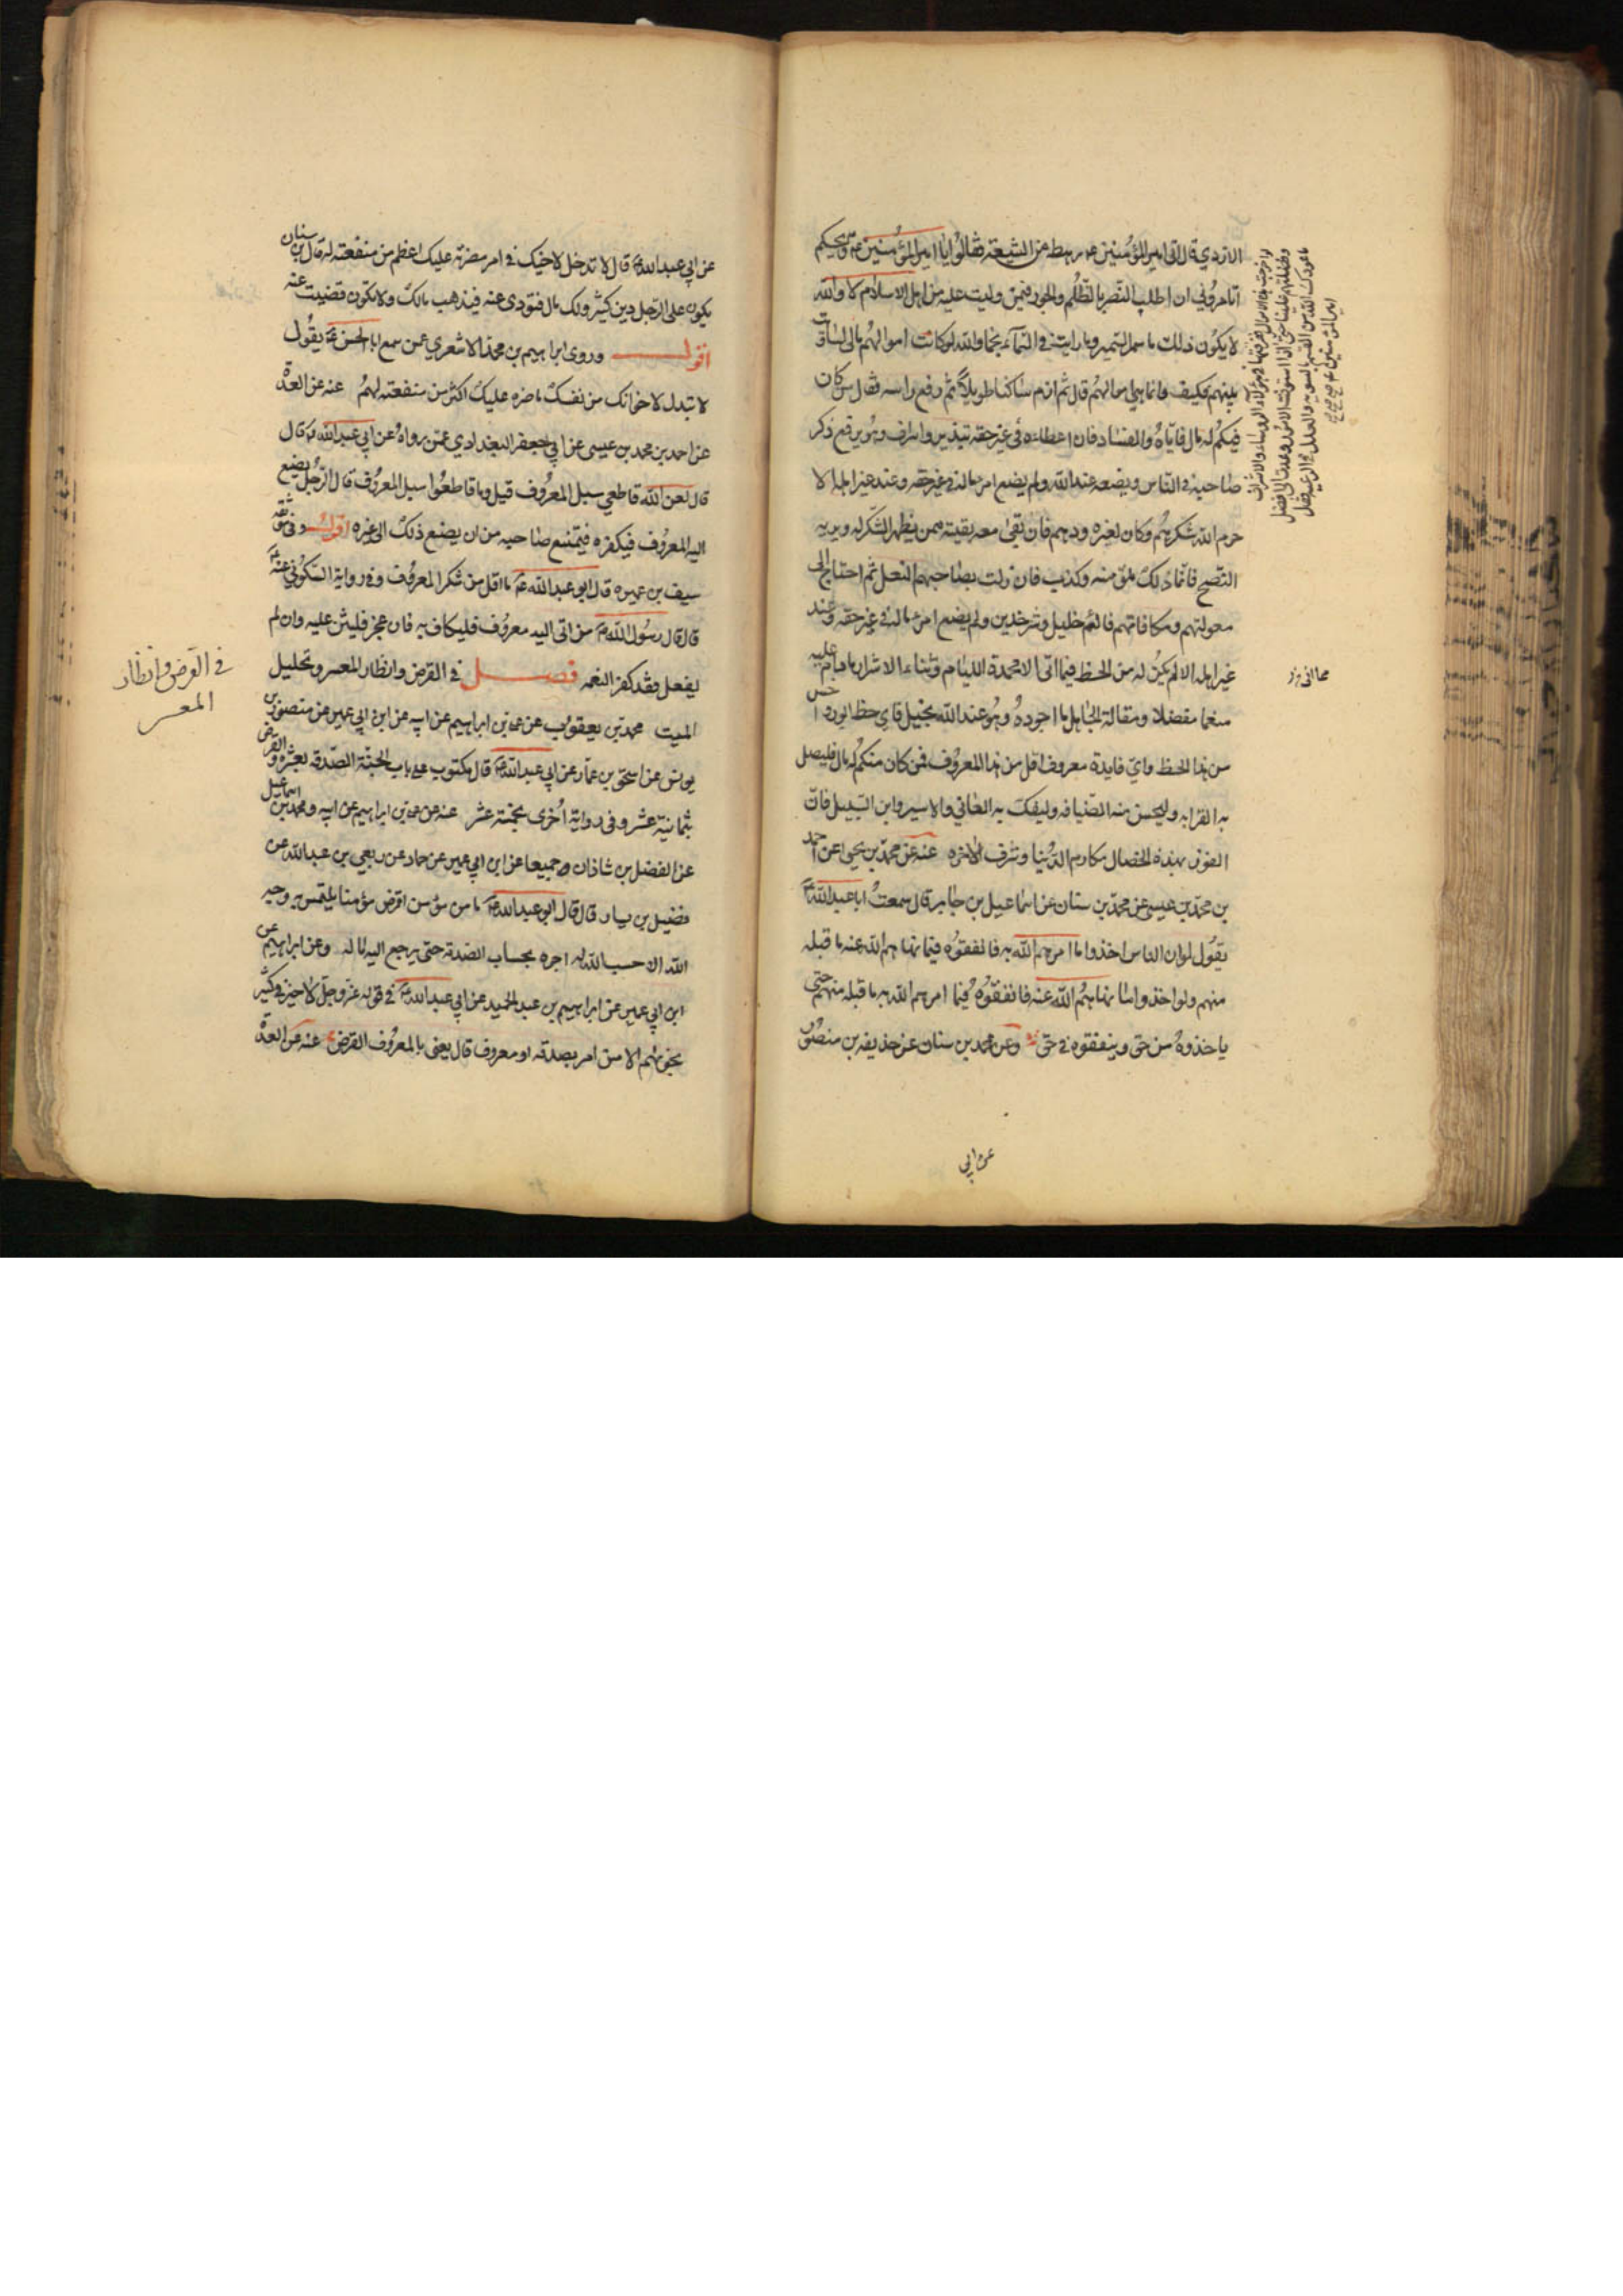 الازدي قال اتى امير المؤمنين عم رهط من الشيعة فقالوا يا امير المؤمنين عم ويحكم
اتامروني ان اطلب النصر بالظلم والجور فيمن وليت عليه من اهل الاسلام لا والله
لا يكون ذلك ما سمر السمير وما رايت في السماء نجما والله لو كانت اموالهم مالي لساويت
بينهم فكيف وانما هي اموالهم قال ثم ازم ساكتا طويلا ثم رفع راسه فقال من كان
فيكم له مال فاياه والفساد فان اعطاءه في غير حقه تبذير واسراف وهو يرفع ذكر
صاحبه في الناس ويضعه عند الله ولم يضع امرء ماله في غير حقه وعند غير اهله الا
حرم الله شكرهم وكان لغيره ودهم فان بقي معه بقية ممن يظهر الشكر له ويريه
النصح فانما ذلك ملق منه وكذب فان زلت بصاحبهم النعل ثم احتاج الى
معونتهم ومكافاتهم فالئم خليل وشر خدين ولم يضع امرء ماله في غير حقه وعند
غير اهله الا لم يكن له من الحظ فيما اتى الا محمدة الليام وثناء الاشرار ما دام عليه
منعما مفضلا ومقالة الجاهل ما اجوده وهو عند الله بخيل فاي حظ ابور واخس
من هذا الحظ واي فايدة معروف اقل من هذا المعروف فمن كان منكم له مال فليصل
به القرابه وليحسن منه الضيافه وليفك به العاني والاسير وابن السبيل فان
الفوز بهذه الخصال مكارم الدنيا وشرف الاخره عنه عن محمد بن يحيى عن احمد
بن محمد بن عيسى عن محمد بن سنان عن اسماعيل بن جابر قال سمعت ابا عبد الله ع
يقول لو ان الناس اخذوا ما امرهم الله به فانفقوه فيما نهاهم الله عنه ما قبله
منهم ولو اخذوا ما نهاهم الله عنه فانفقوه فيما امرهم الله به ما قبله منهم حتى
ياخذوه من حق وينفقوه في حق وعن محمد بن سنان عن حذيفه بن منصور
عن ابي
لو اخرجت هذه الاموال ففرقتها في هؤلاء الروساء والاشراف
وفضلتهم علينا حتى اذا استوثقت الامور وعدت الى افضل
ما عودك الله من القسم بالسويه والعدل في الرعيه فقال
امير المؤمنين عم
عن ابي عبد الله ع قال لا تدخل لاخيك في امر مضرته عليك اعظم من منفعته له قال بن سنان
يكون على الرجل دين كثير ولك مال فتودى عنه فيذهب مالك ولا تكون قضيت عنه
اقول وروى ابراهيم بن محمد الاشعري عمن سمع ابا الحسن ع يقول
لا تبذل لاخوانك من نفسك ما ضره عليك اكثر من منفعته لهم عنه عن العدة
عن احمد بن محمد بن عيسى عن ابي جعفر البغدادي عمن رواه عن ابي عبد الله ع قال
قال لعن الله قاطعي سبل المعروف قيل وما قاطعوا سبل المعروف قال الرجل يصنع
اليه المعروف فيكفره فيمتنع صاحبه من ان يصنع ذلك الى غيره اقول وفي موثقه
سيف بن عميره قال ابو عبد الله ع ما اقل من شكر المعروف وفي رواية السكوني عنه ع
قال قال رسول الله ص من اتى اليه معروف فليكاف به فان عجز فليثن عليه وان لم
يفعل فقد كفر النعمه فصل في القرض وانظار المعسر وتحليل
الميت محمد بن يعقوب عن علي بن ابراهيم عن ابيه عن ابن ابي عمير عن منصور بن
يونس عن اسحق بن عمار عن ابي عبد الله ع قال مكتوب على باب الجنة الصدقه بعشره والقرض
بثمانية عشر وفي رواية اخرى بخمسة عشر عنه عن علي بن ابراهيم عن ابيه ومحمد بن اسماعيل
عن الفضل بن شاذان جميعا عن ابن ابي عمير عن حماد عن ربعي بن عبد الله عن
فضيل بن يسار قال قال ابو عبد الله ع ما من مؤمن اقرض مؤمنا يلتمس به وجه
الله الا حسب الله له اجره بحساب الصدقه حتى يرجع اليه ماله وعن ابراهيم عن
ابن ابي عمير عن ابراهيم بن عبد الحميد عن ابي عبد الله ع في قوله عز وجل لا خير في كثير
من نجواهم الا من امر بصدقه او معروف قال يعني بالمعروف القرض عنه عن العدة
في القرض وانظار
المعسر